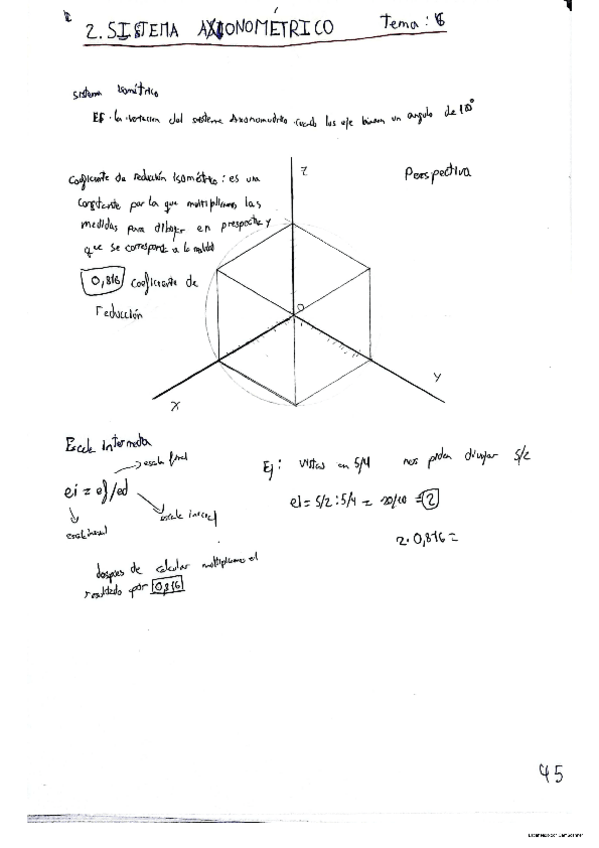 2. SISTEMA AXIONOMÉTRICO Tema: 6
Sistema Isométrico
Es la variación del sistema Axonometrico cuando los eje tienen un angulo de 120°
Coeficiente de reducción Isométrico: es una
constante por la que multiplicamos las
medidas para dibujar en prespectiva y
que se corresponda a la realidad
0,816 coeficiente de
reducción
Perspectiva
Z
O
X
Y
Escala intermedia
escala final
ei = ef/ed
escala
después de calcular multiplicamos el
resultado por 0,816
Ej: vistas en 5/4 nos piden dibujar 5/2
ei = 5/2 : 5/4 = 20/10 = 2
2 · 0,816 =
45